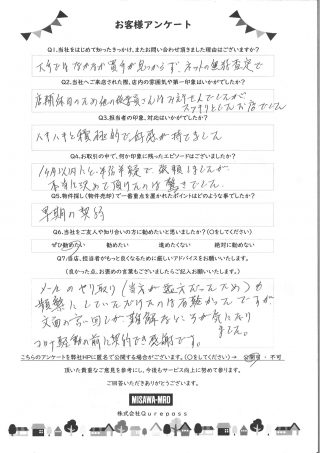 お客様アンケート
Q1.当社をはじめて知ったきっかけ、またお問い合わせ頂きました理由はございますか?
大手ではなかなか買手が見つからず、ネットの無料査定で
Q2.当社へご来店された際、店内の雰囲気や第一印象はいかがでしたか?
店舗休日のため他の従業員さんはみけませんでしたが
スッキリとしたお店でした
Q3.担当者の印象、対応はいかがでしたか?
ハキハキと積極的で好感が持てました
Q4.お取引の中で、何か印象に残ったエピソードはございましたか?
1ヶ月以内に
本当に決めて頂けたのは驚きでした。
Q5.物件探し(物件売却)で一番重点を置かれたポイントはどのような事でしたか?
早期の契約
Q6.当社をご友人や知り合いの方に勧めたいと思いましたか?(〇をしてください)
ぜひ勧めたい 勧めたい 進めたくない 絶対に勧めない
Q7.当店、担当者がもっと良くなるために厳しいアドバイスをお願いいたします。
(良かった点、お褒めの言葉もございましたらご記入お願いいたします。)
メールのやり取り(当方が
頻繁にしていただけたのは有難かったですが
文面の言い回しが
ました。
コロナ
の前に契約でき感謝です。
こちらのアンケートを弊社HPに匿名で公開する場合がございます。(〇をしてください)→ 公開可・不可
頂いた貴重なご意見を参考にし、今後もサービス向上に努めて参ります。
ご回答いただきありがとうございます。
MISAWA-MRD
株式会社Qurepass